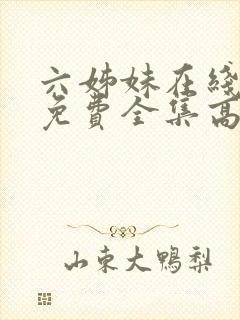 六姊妹在线
免費全集高
山東大鴨梨